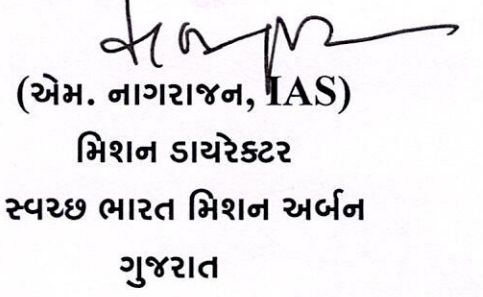 (એમ. નાગરાજન, IAS)
મિશન ડાયરેક્ટર
સ્વચ્છ ભારત મિશન અર્બન
ગુજરાત